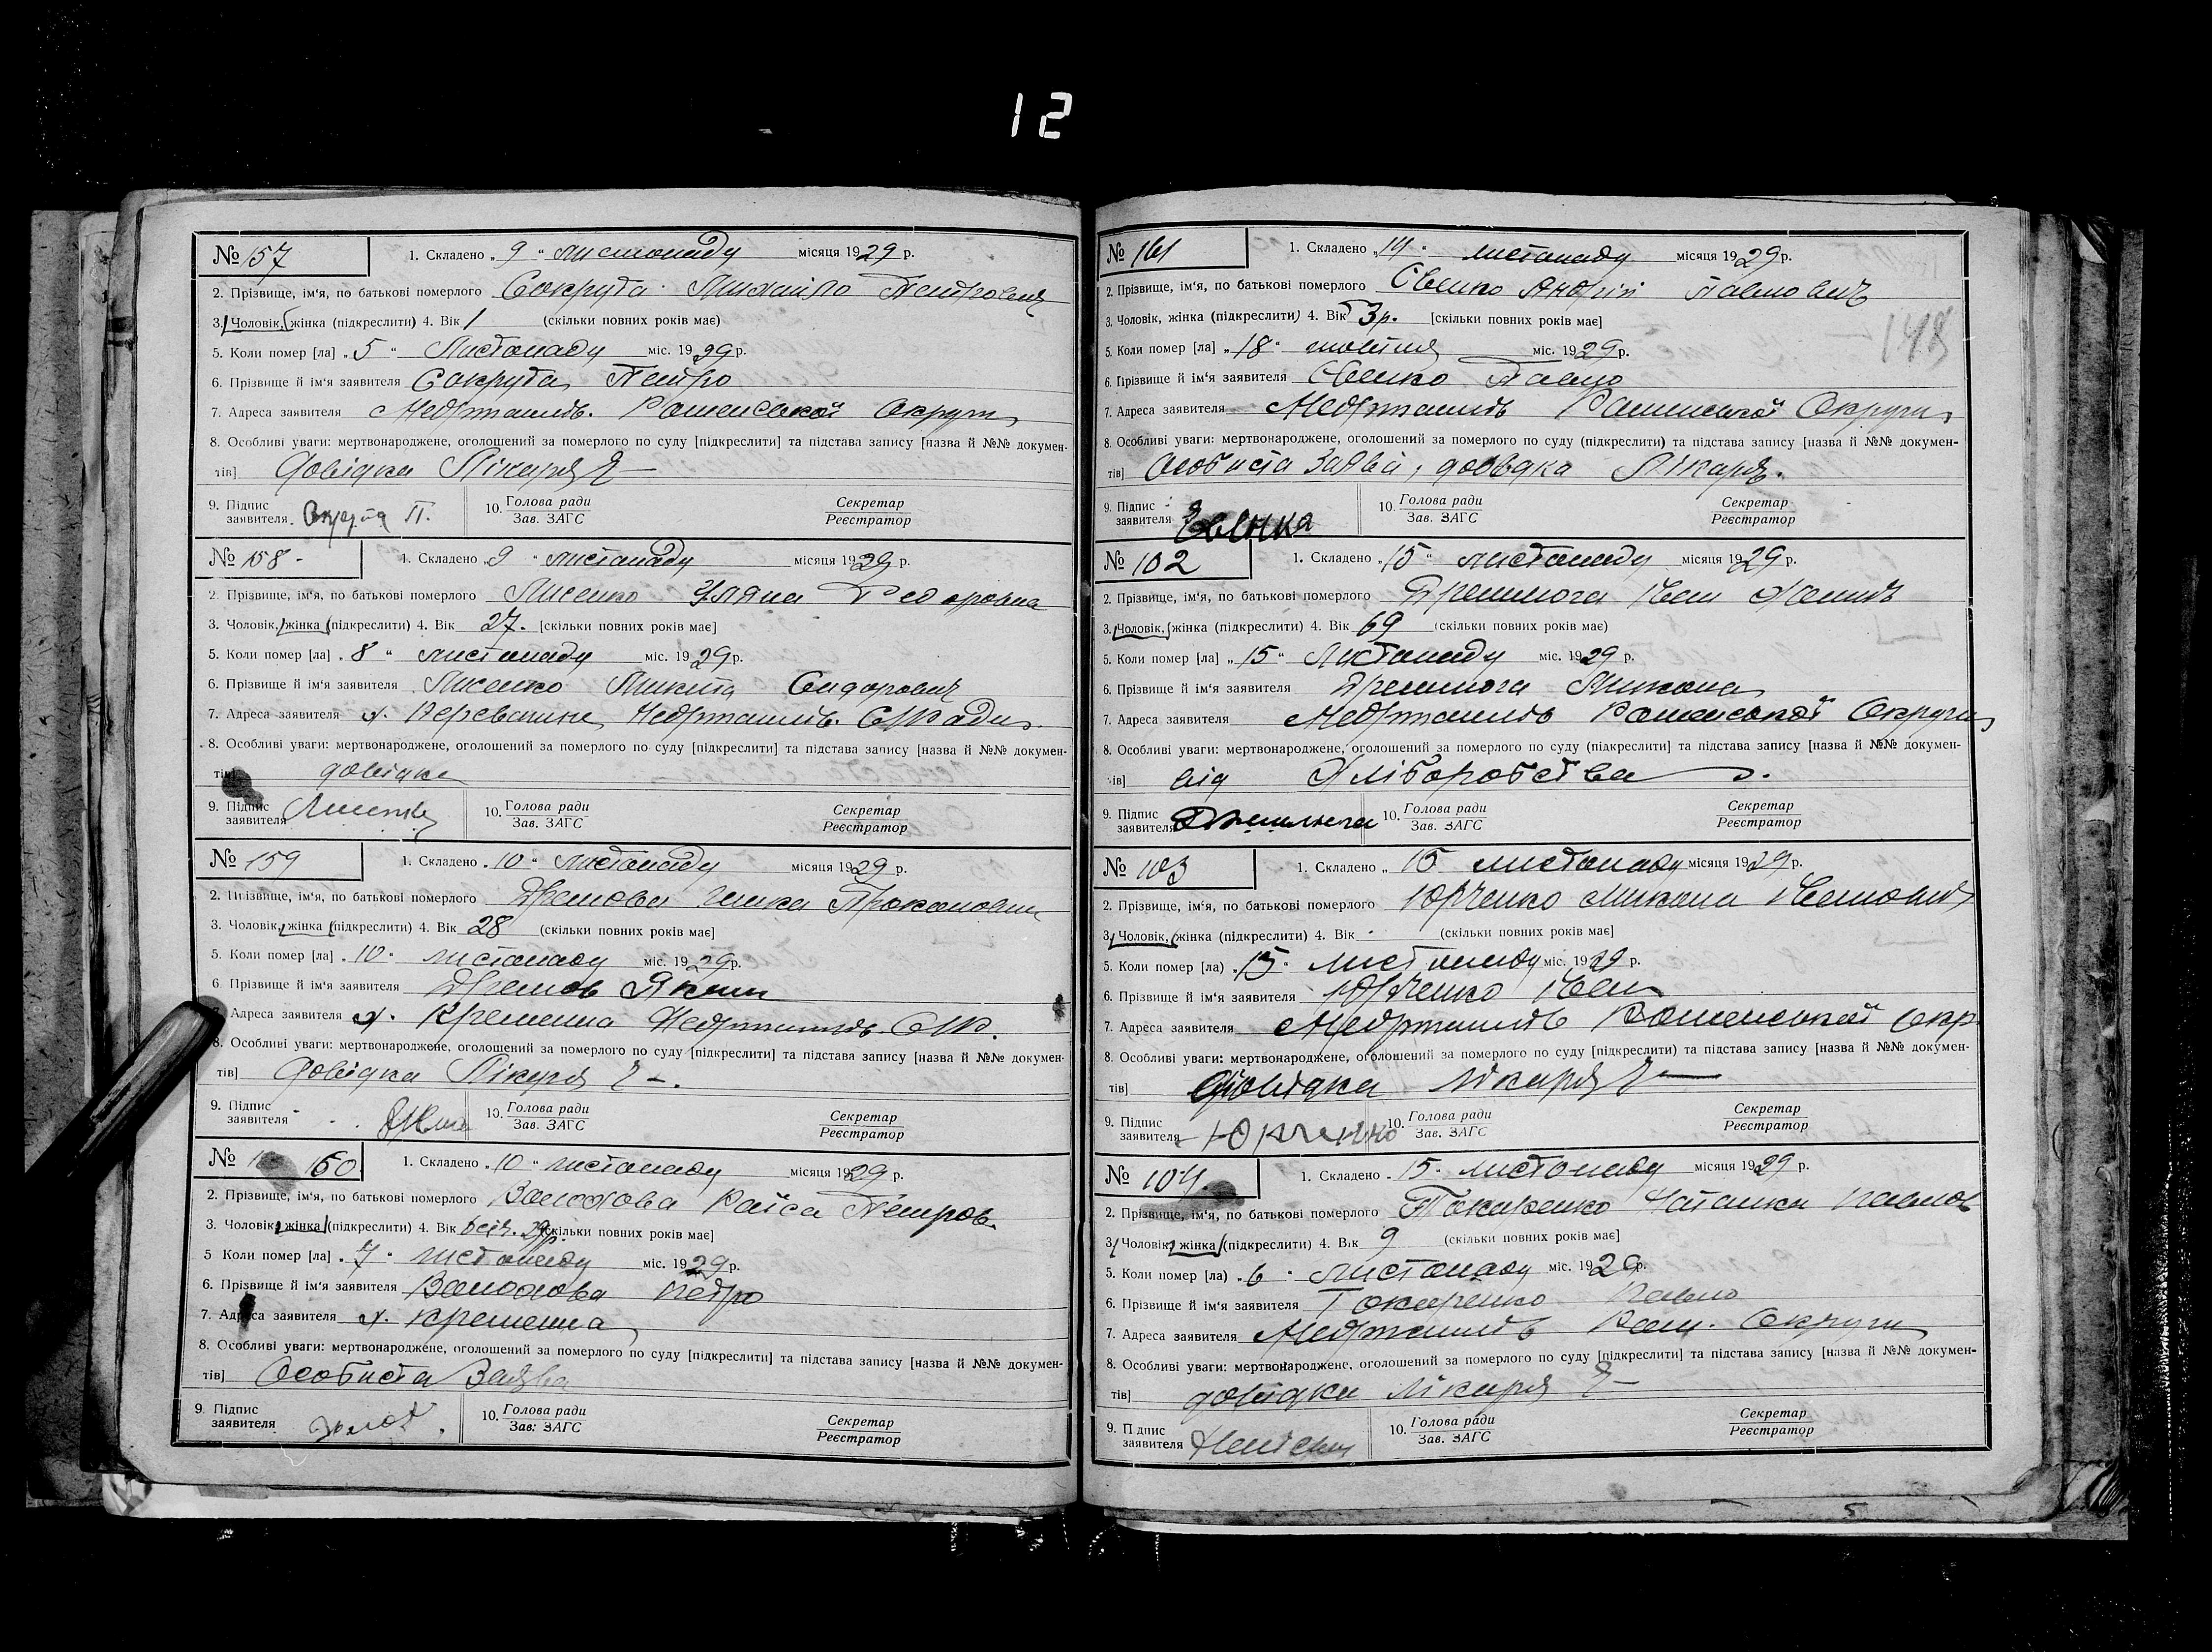 12
№ 157 1. Складено „9“ листопаду місяця 1929 р.
2. Прізвище, ім‘я, по батькові померлого Сокрута Михайло Петрович
3. Чоловік, жінка (підкреслити) 4. Вік 1 (скільки повних років має)
5. Коли помер [ла] „5“ Листопаду міс. 1929 р.
6. Прізвище й ім‘я заявителя Сокрута Петро
7. Адреса заявителя Недригайлів. Роменської Округи
8. Особливі уваги: мертвонароджене, оголошений за померлого по суду [підкреслити] та підстава запису [назва й №№ докумен-
тів] Довідка Лікаря
9. Підпис заявителя П. 10. Голова ради Зав. ЗАГС Секретар Реєстратор
№ 158 - 1. Складено „9“ листопаду місяця 1929 р.
2. Прізвище, ім‘я, по батькові померлого Лисенко Уляна Федоровна
3. Чоловік, жінка (підкреслити) 4. Вік 27. [скільки повних років має]
5. Коли помер [ла] „8“ листопаду міс. 1929 р.
6. Прізвище й ім‘я заявителя Лисенко Микита Сидорович
7. Адреса заявителя х. Недригайлів. С/Ради
8. Особливі уваги: мертвонароджене, оголошений за померлого по суду [підкреслити] та підстава запису [назва й №№ докумен-
тів] довідка
9. Підпис заявителя 10. Голова ради Зав. ЗАГС Секретар Реєстратор
№ 159 1. Складено „10“ листопаду місяця 1929 р.
2. Прізвище, ім‘я, по батькові померлого
3. Чоловік, жінка (підкреслити) 4. Вік 28 (скільки повних років має]
5. Коли помер [ла] „10“ листопаду міс. 1929 р.
6. Прізвище й ім‘я заявителя Яким
7. Адреса заявителя х. Кременна Недригайлів С/Р.
8. Особливі уваги: мертвонароджене, оголошений за померлого по суду [підкреслити] та підстава запису [назва й №№ докумен-
тів] Довідка Лікаря
9. Підпис заявителя 10. Голова ради Зав. ЗАГС Секретар Реєстратор
№ 160. 1. Складено „10“ листопаду місяця 1929 р.
2. Прізвище, ім‘я, по батькові померлого Раїса Петров.
3. Чоловік, жінка (підкреслити) 4. Вік [скільки повних років має]
5 Коли помер [ла] „7“ листопаду міс. 1929 р.
6. Прізвище й ім‘я заявителя Петро
7. Адреса заявителя х. Кременна
8. Особливі уваги: мертвонароджене, оголошений за померлого по суду [підкреслити] та підстава запису [назва й №№ докумен-
тів] Особиста Заява
9. Підпис заявителя 10. Голова ради Зав: ЗАГС Секретар Реєстратор
№ 161 1. Складено „14“ листопаду місяця 1929 р.
2. Прізвище, ім‘я, по батькові померлого Андрій Павлович
148
3. Чоловік, жінка (підкреслити) 4. Вік 3 р. [скільки повних років має]
5. Коли помер [ла] „18“ жовтня міс. 1929 р.
6. Прізвище й ім‘я заявителя Павло
7. Адреса заявителя Недригайлів Роменської Округи
8. Особливі уваги: мертвонароджене, оголошений за померлого по суду (підкреслити) та підстава запису [назва й №№ докумен-
тів] Особиста Заява, довідка Лікаря.
9. Підпис заявителя 10. Голова ради Зав. ЗАГС Секретар Реєстратор
№ 102 1. Складено „15“ листопаду місяця 1929 р.
2. Прізвище, ім‘я, по батькові померлого Дремлюга Іван
3. Чоловік, жінка (підкреслити) 4. Вік 69 (скільки повних років має)
5. Коли помер [ла] „15“ Листопаду міс. 1929 р.
6. Прізвище й ім‘я заявителя Дремлюга Микола
7. Адреса заявителя Недригайлів Роменської Округи
8. Особливі уваги: мертвонароджене, оголошений за померлого по суду (підкреслити] та підстава запису [назва й №№ докумен-
тів] від Хліборобства
9. Підпис заявителя Дремлюга 10. Голова ради Зав. ЗАГС Секретар Реєстратор
№ 103 1. Складено „15 листопаду місяця 1929 р.
2. Прізвище, ім‘я, по батькові померлого Юрченко Микола Іванович
3. Чоловік, жінка (підкреслити) 4. Вік (скільки повних років має]
5. Коли помер [ла) „15“ листопаду міс. 1929 р.
6. Прізвище й ім‘я заявителя Юрченко Іван
7. Адреса заявителя Недригайлів Роменської Окр.
8. Особливі уваги: мертвонароджене, оголошений за померлого по суду [підкреслити) та підстава запису [назва й №№ докумен-
тів] Довідка лікаря
9. Підпис заявителя Юрченко 10. Голова ради Зав. ЗАГС Секретар Реєстратор
№ 104. 1. Складено „15“ листопаду місяця 1929 р.
2. Прізвище, ім‘я, по батькові померлого Токаренко Наталка Павлов
3. Чоловік, жінка (підкреслити) 4. Вік 9 (скільки повних років має]
5. Коли помер [ла) „6“ листопаду міс. 1929 р.
6. Прізвище й ім‘я заявителя Токаренко Павло
7. Адреса заявителя Недригайлів Ром. Округи
8. Особливі уваги: мертвонароджене, оголошений за померлого по суду [підкреслити] та підстава запису [назва й №№ докумен-
тів] довідка лікаря
9. Підпис заявителя 10. Голова ради Зав. ЗАГС Секретар Реєстратор
5